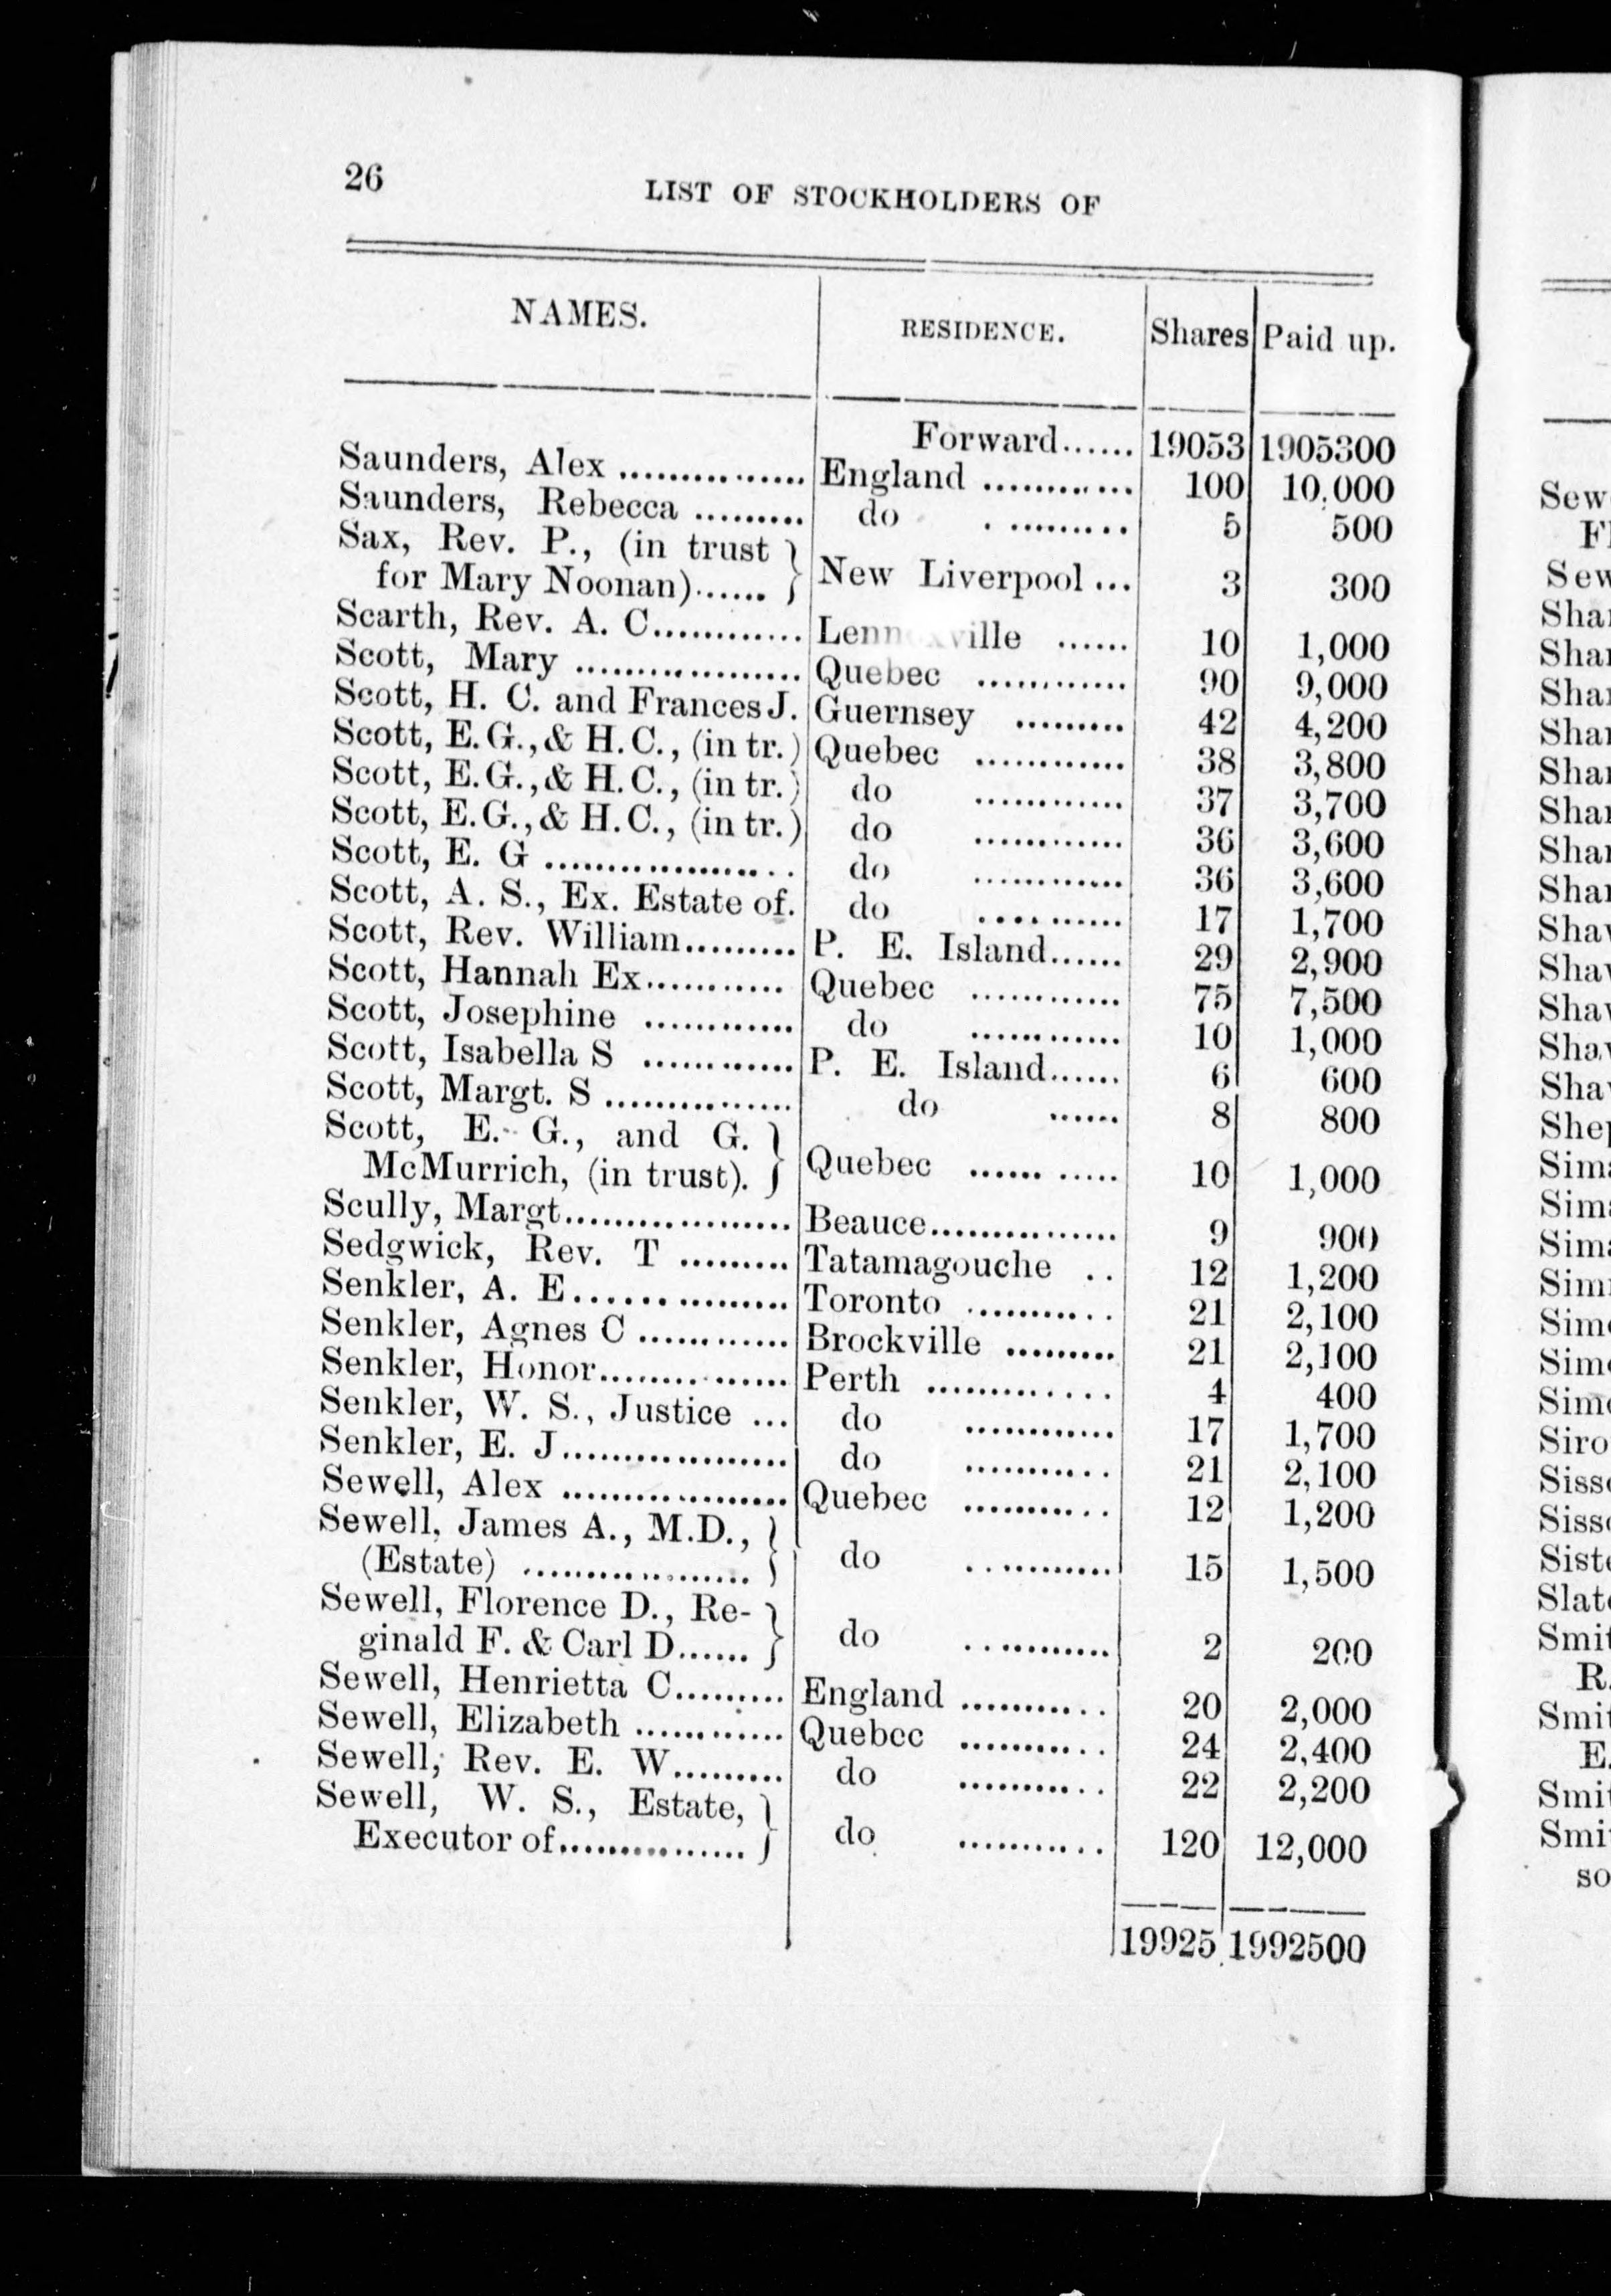 26
LIST OF STOCKHOLDERS OF
NAMES. RESIDENCE. Shares Paid up.
Forward...... 19053 1905300
Saunders, Alex ............... England ............ 100 10,000
Saunders, Rebecca ......... do .......... 5 500
Sax, Rev. P., (in trust
for Mary Noonan)...... New Liverpool ... 3 300
Scarth, Rev. A. C............ ...... 10 1,000
Scott, Mary .................. Quebec ............ 90 9,000
Scott, H. C. and Frances J. Guernsey ......... 42 4,200
Scott, E. G., & H. C., (in tr.) Quebec ............ 38 3,800
Scott, E. G., & H. C., (in tr.) do ............ 37 3,700
Scott, E. G., & H. C., (in tr.) do ............ 36 3,600
Scott, E. G .................... do ............ 36 3,600
Scott, A. S., Ex. Estate of. do ........... 17 1,700
Scott, Rev. William......... P. E. Island...... 29 2,900
Scott, Hannah Ex........... Quebec ............ 75 7,500
Scott, Josephine ............ do ............ 10 1,000
Scott, Isabella S ............ P. E. Island...... 6 600
Scott, Margt. S ............... do ...... 8 800
Scott, E. G., and G.
McMurrich, (in trust). Quebec ...... ..... 10 1,000
Scully, Margt.................. Beauce............... 9 900
Sedgwick, Rev. T ......... Tatamagouche .. 12 1,200
Senkler, A. E.................. Toronto ............ 21 2,100
Senkler, Agnes C ............ Brockville ......... 21 2,100
Senkler, Honor............... Perth ............. 4 400
Senkler, W. S., Justice ... do ............ 17 1,700
Senkler, E. J.................. do ........... 21 2,100
Sewell, Alex .................. Quebec ........... 12 1,200
Sewell, James A., M.D.,
(Estate) .................. do ........... 15 1,500
Sewell, Florence D., Re-
ginald F. & Carl D...... do ........... 2 200
Sewell, Henrietta C......... England ........... 20 2,000
Sewell, Elizabeth ............ Quebec ........... 24 2,400
Sewell, Rev. E. W......... do ........... 22 2,200
Sewell, W. S., Estate,
Executor of............... do ........... 120 12,000
19925 1992500